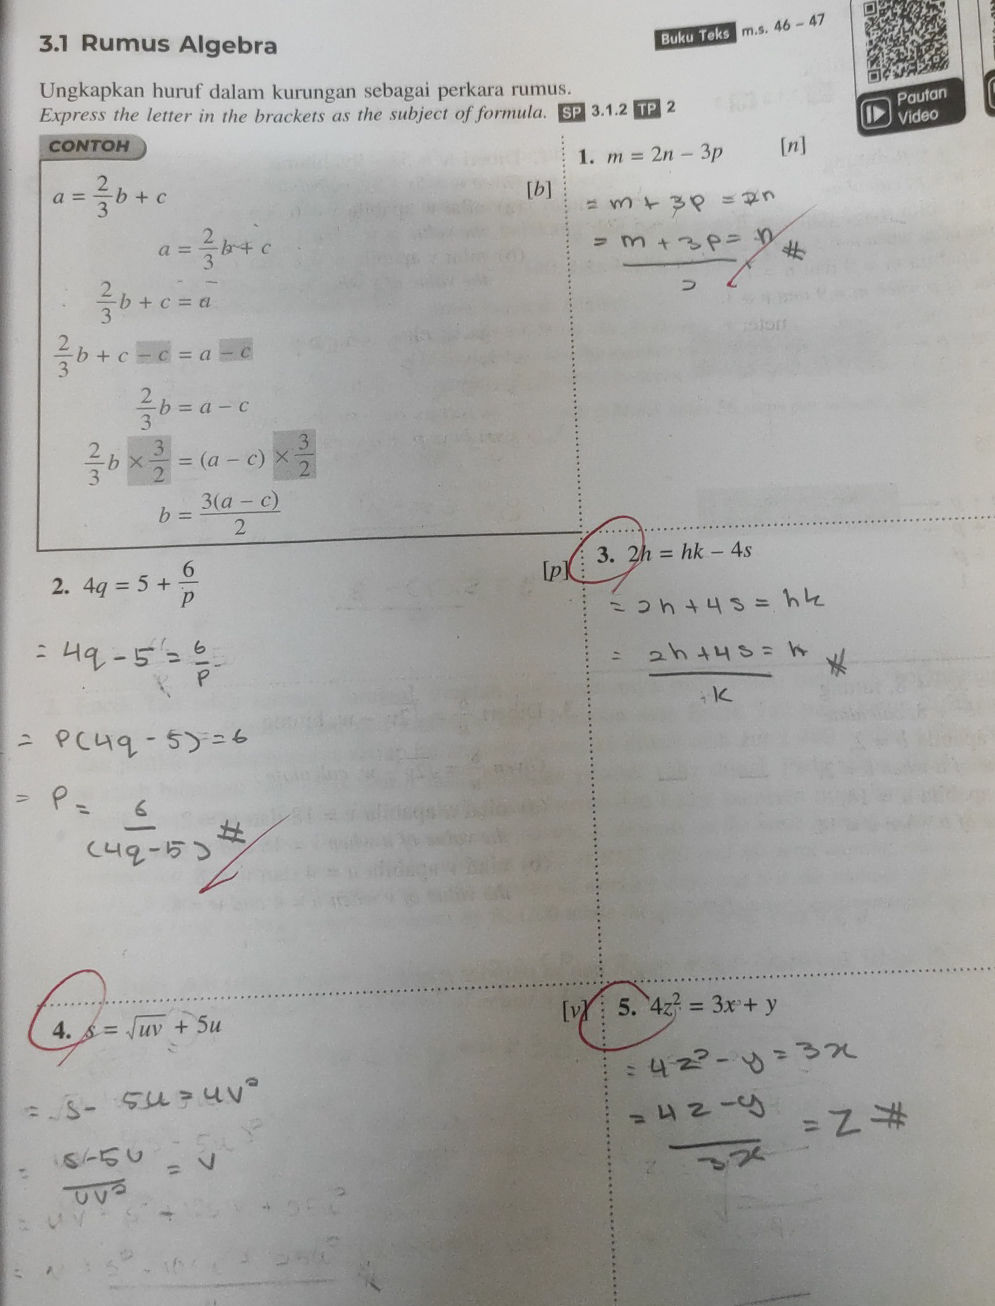 3.1 Rumus Algebra
Buku Teks m.s. 46 – 47
Pautan
Video
Ungkapkan huruf dalam kurungan sebagai perkara rumus.
Express the letter in the brackets as the subject of formula. SP 3.1.2 TP 2
CONTOH
a = 2/3 b + c [b]
a = 2/3 b + c
2/3 b + c = a
2/3 b + c – c = a – c
2/3 b = a – c
2/3 b × 3/2 = (a – c) × 3/2
b = 3(a – c)/2
1. m = 2n – 3p [n]
= m + 3p = 2n
= m + 3p = n #
2
2. 4q = 5 + 6/p [p]
= 4q – 5 = 6/p
= P(4q – 5) = 6
= P = 6/(4q – 5) #
3. 2h = hk – 4s
= 2h + 4s = hk
= 2h + 4s = k #
k
4. s = √uv + 5u [v]
= s – 5u = uv²
= s – 5u / uv² = v
5. 4z² = 3x + y
= 4z² – y = 3x
= 4z – y / 3x = z #